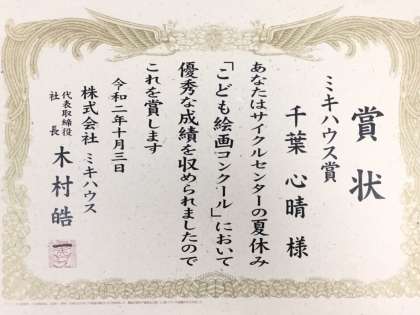 賞状
ミキハウス賞
千葉 心晴 様
あなたはサイクルセンターの夏休み
「こども絵画コンクール」において
優秀な成績を収められましたので
これを賞します
令和二年十月三日
株式会社 ミキハウス
代表取締役
社長 木村 皓